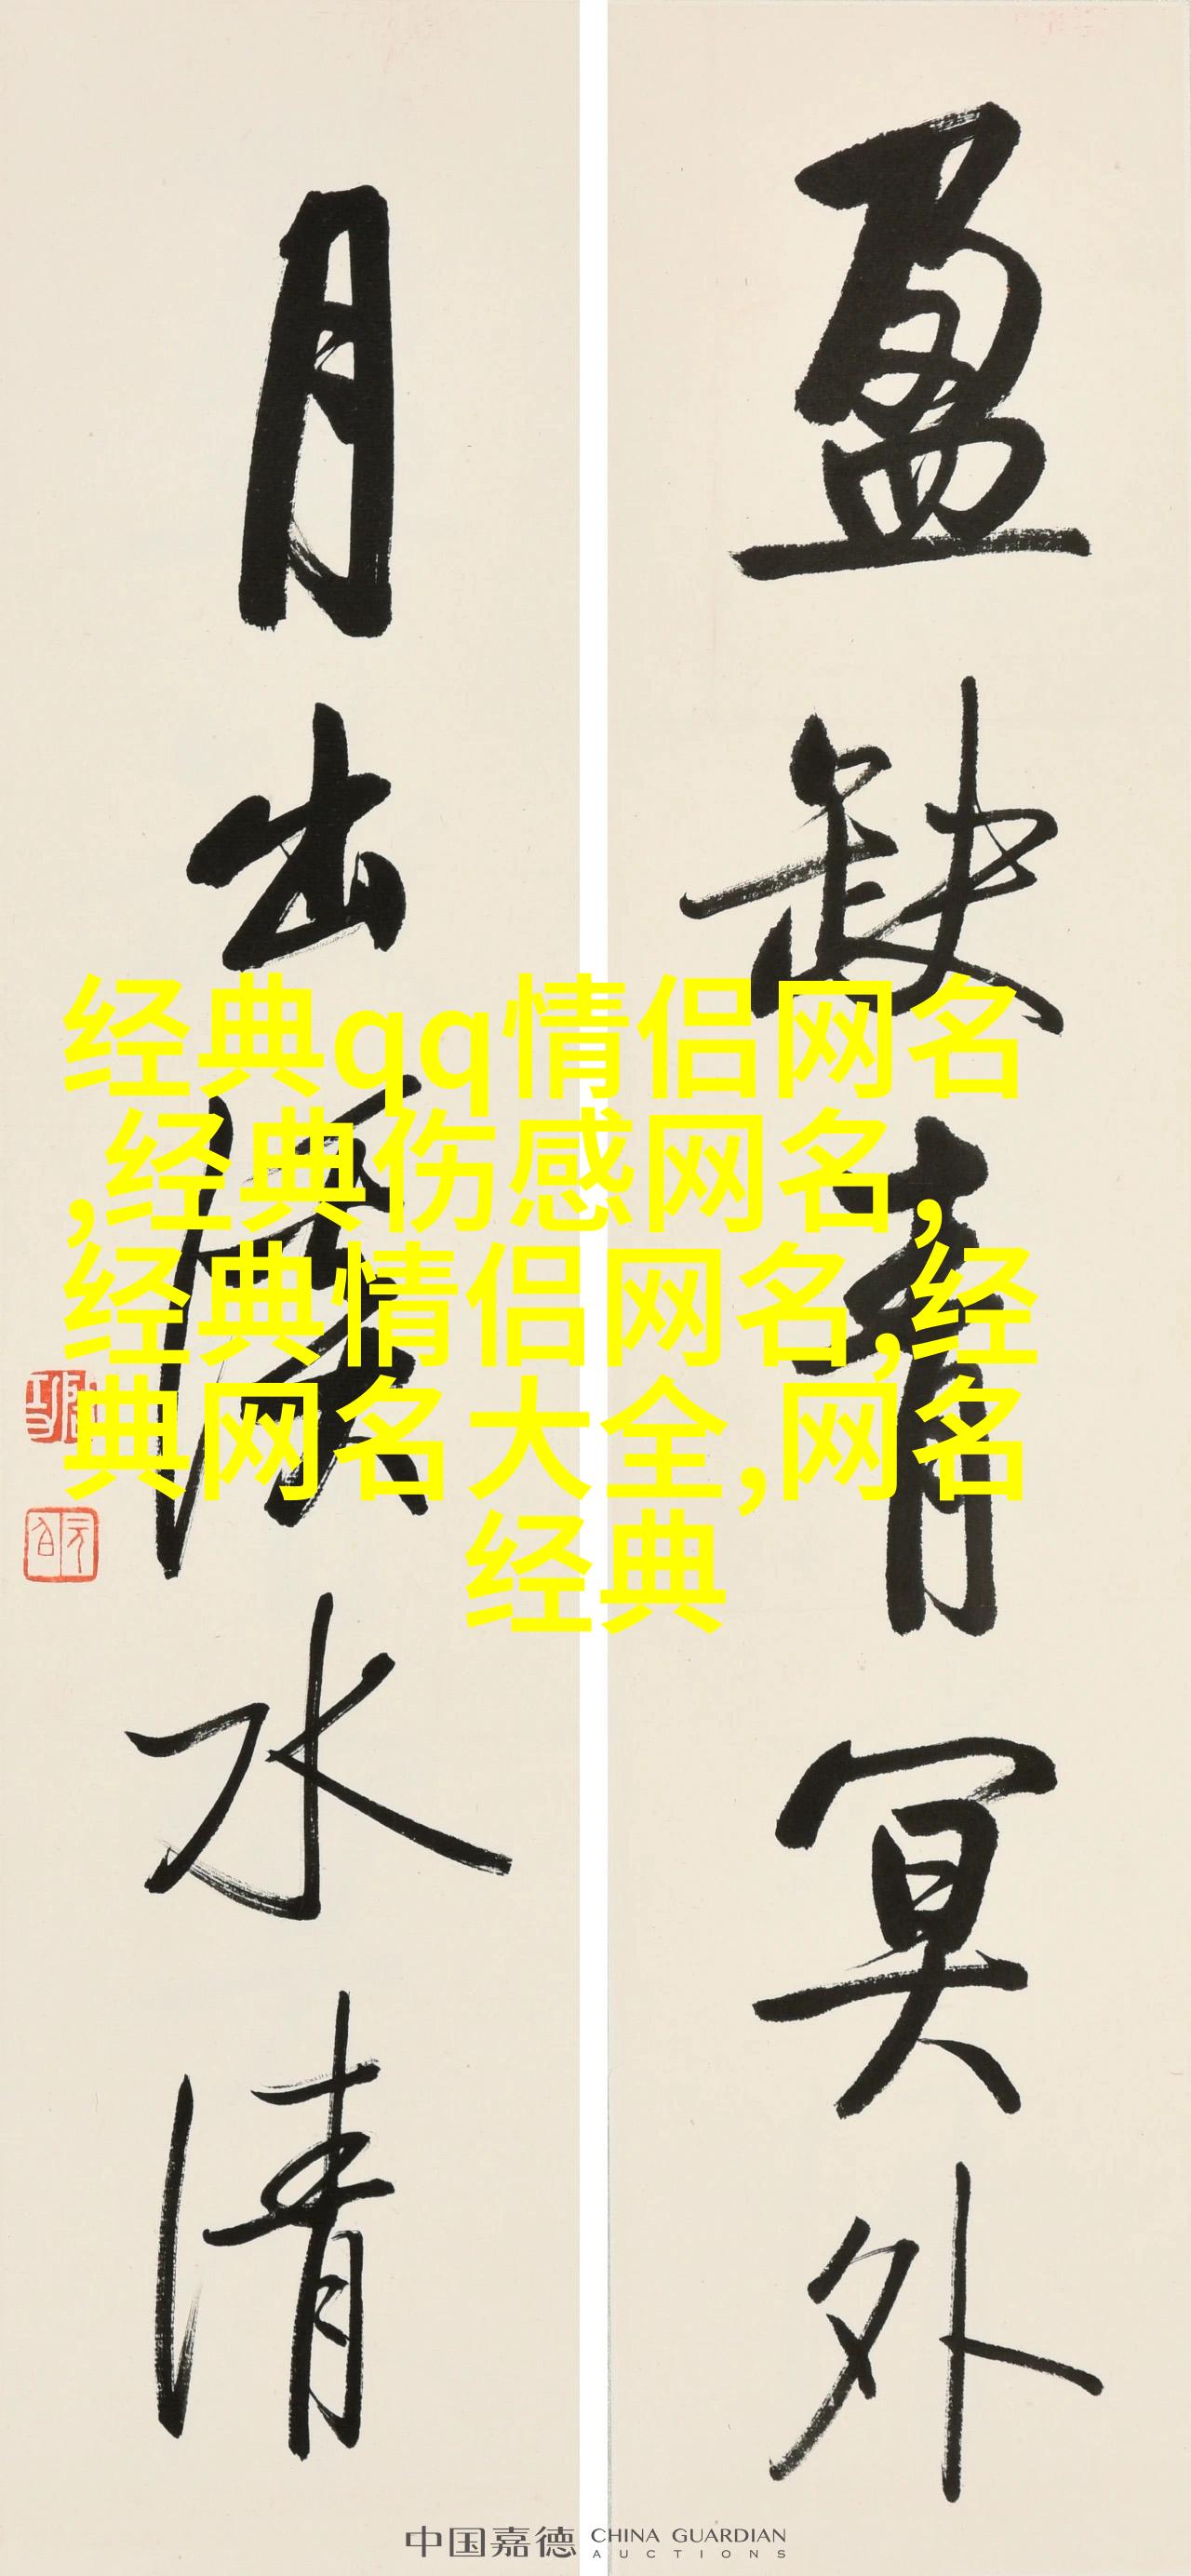 盈缺青冥外
月出水清
元白
经典qq情侣网名
,经典伤感网名,
经典情侣网名,经
典网名大全,网名
经典
中国嘉德 CHINA GUARDIAN
AUCTIONS